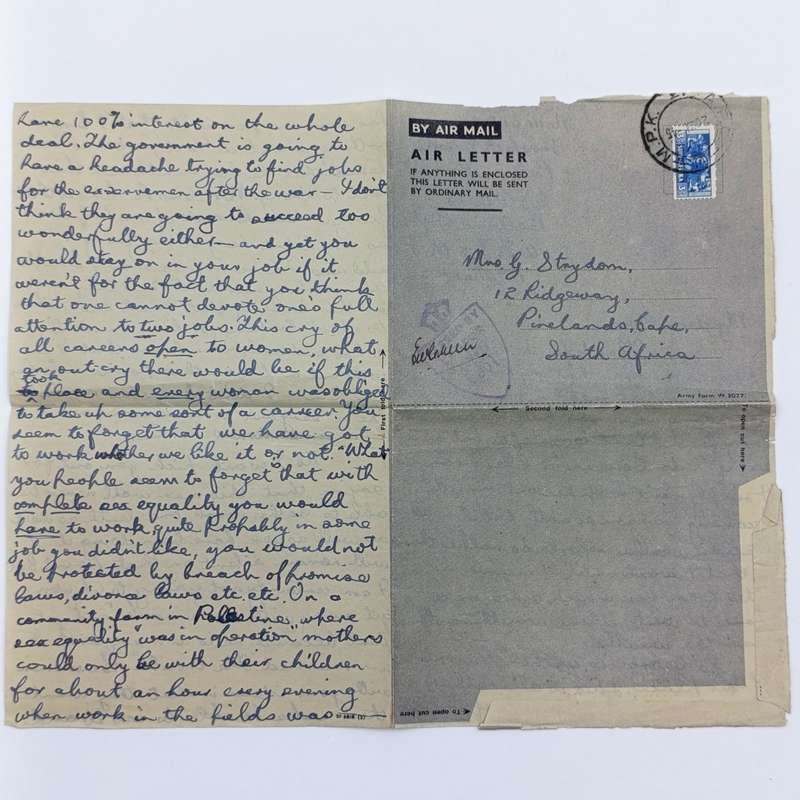 have 100% interest on the whole
deal. The government is going to
have a headache trying to find jobs
for the exservicemen after the war - I don't
think they are going to succeed too
wonderfully either - and yet you
would stay on in your job if it
weren't for the fact that you think
that one cannot devote one's full
attention to two jobs. This cry of
all careers open to women, what
an outcry there would be if this
took place and every woman was obliged
to take up some sort of a career. You
seem to forget that we have got
to work whether we like it or not. "What
you people seem to forget" that with
complete sex equality you would
have to work, quite probably in some
job you didn't like, you would not
be protected by breach of promise
laws, divorce laws etc. etc. On a
community farm in Palestine, where
sex equality "was in operation" mothers
could only be with their children
for about an hour every evening
when work in the fields was
First fold here
BY AIR MAIL
AIR LETTER
IF ANYTHING IS ENCLOSED
THIS LETTER WILL BE SENT
BY ORDINARY MAIL.
M.P.K.
Mrs. G. Strydom,
12 Ridgeway,
Pinelands, Cape,
South Africa
Army Form W 3077.
Second fold here
To open cut here
To open cut here